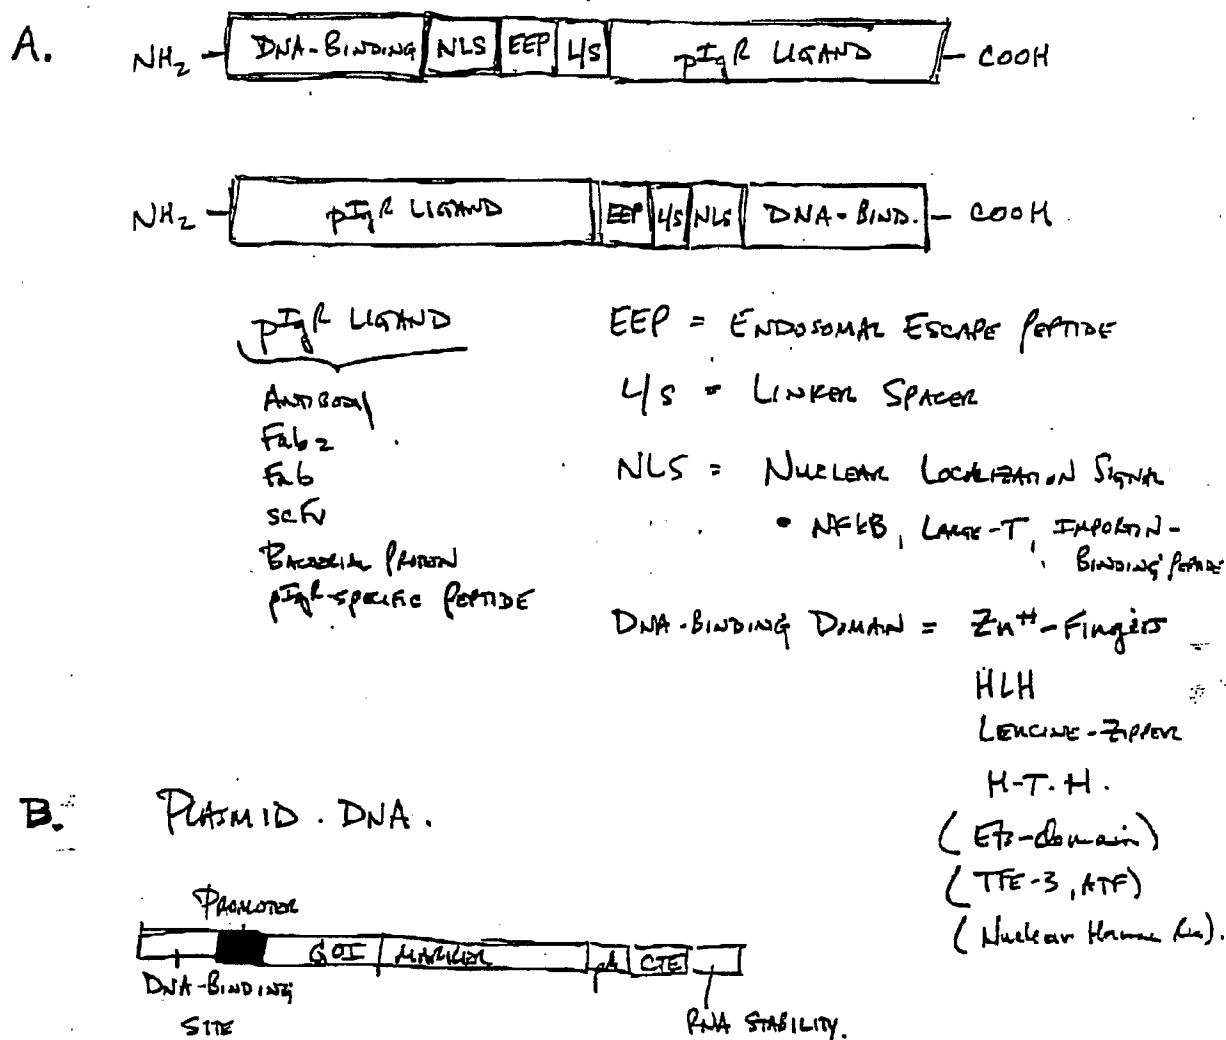 A.
NH2 - DNA-BINDING NLS EEP L/S pIgR LIGAND - COOH
NH2 - pIgR LIGAND EEP L/S NLS DNA-BIND. - COOH
pIgR LIGAND
ANTIBODY
Fab2
Fab
scFv
BACTERIAL PROTEIN
pIgR-SPECIFIC PEPTIDE
EEP = ENDOSOMAL ESCAPE PEPTIDE
L/S = LINKER SPACER
NLS = NUCLEAR LOCALIZATION SIGNAL
• NFkB, LARGE-T, IMPORTIN-
BINDING PEPTIDE
DNA-BINDING DOMAIN = Zn++-Fingers
HLH
LEUCINE-ZIPPER
H-T.H.
(Ets-domain)
(TFE-3, ATF)
(Nuclear Hormone
B. PLASMID DNA.
PROMOTER
GOI MARKER pA CTE
DNA-BINDING
SITE
RNA STABILITY.